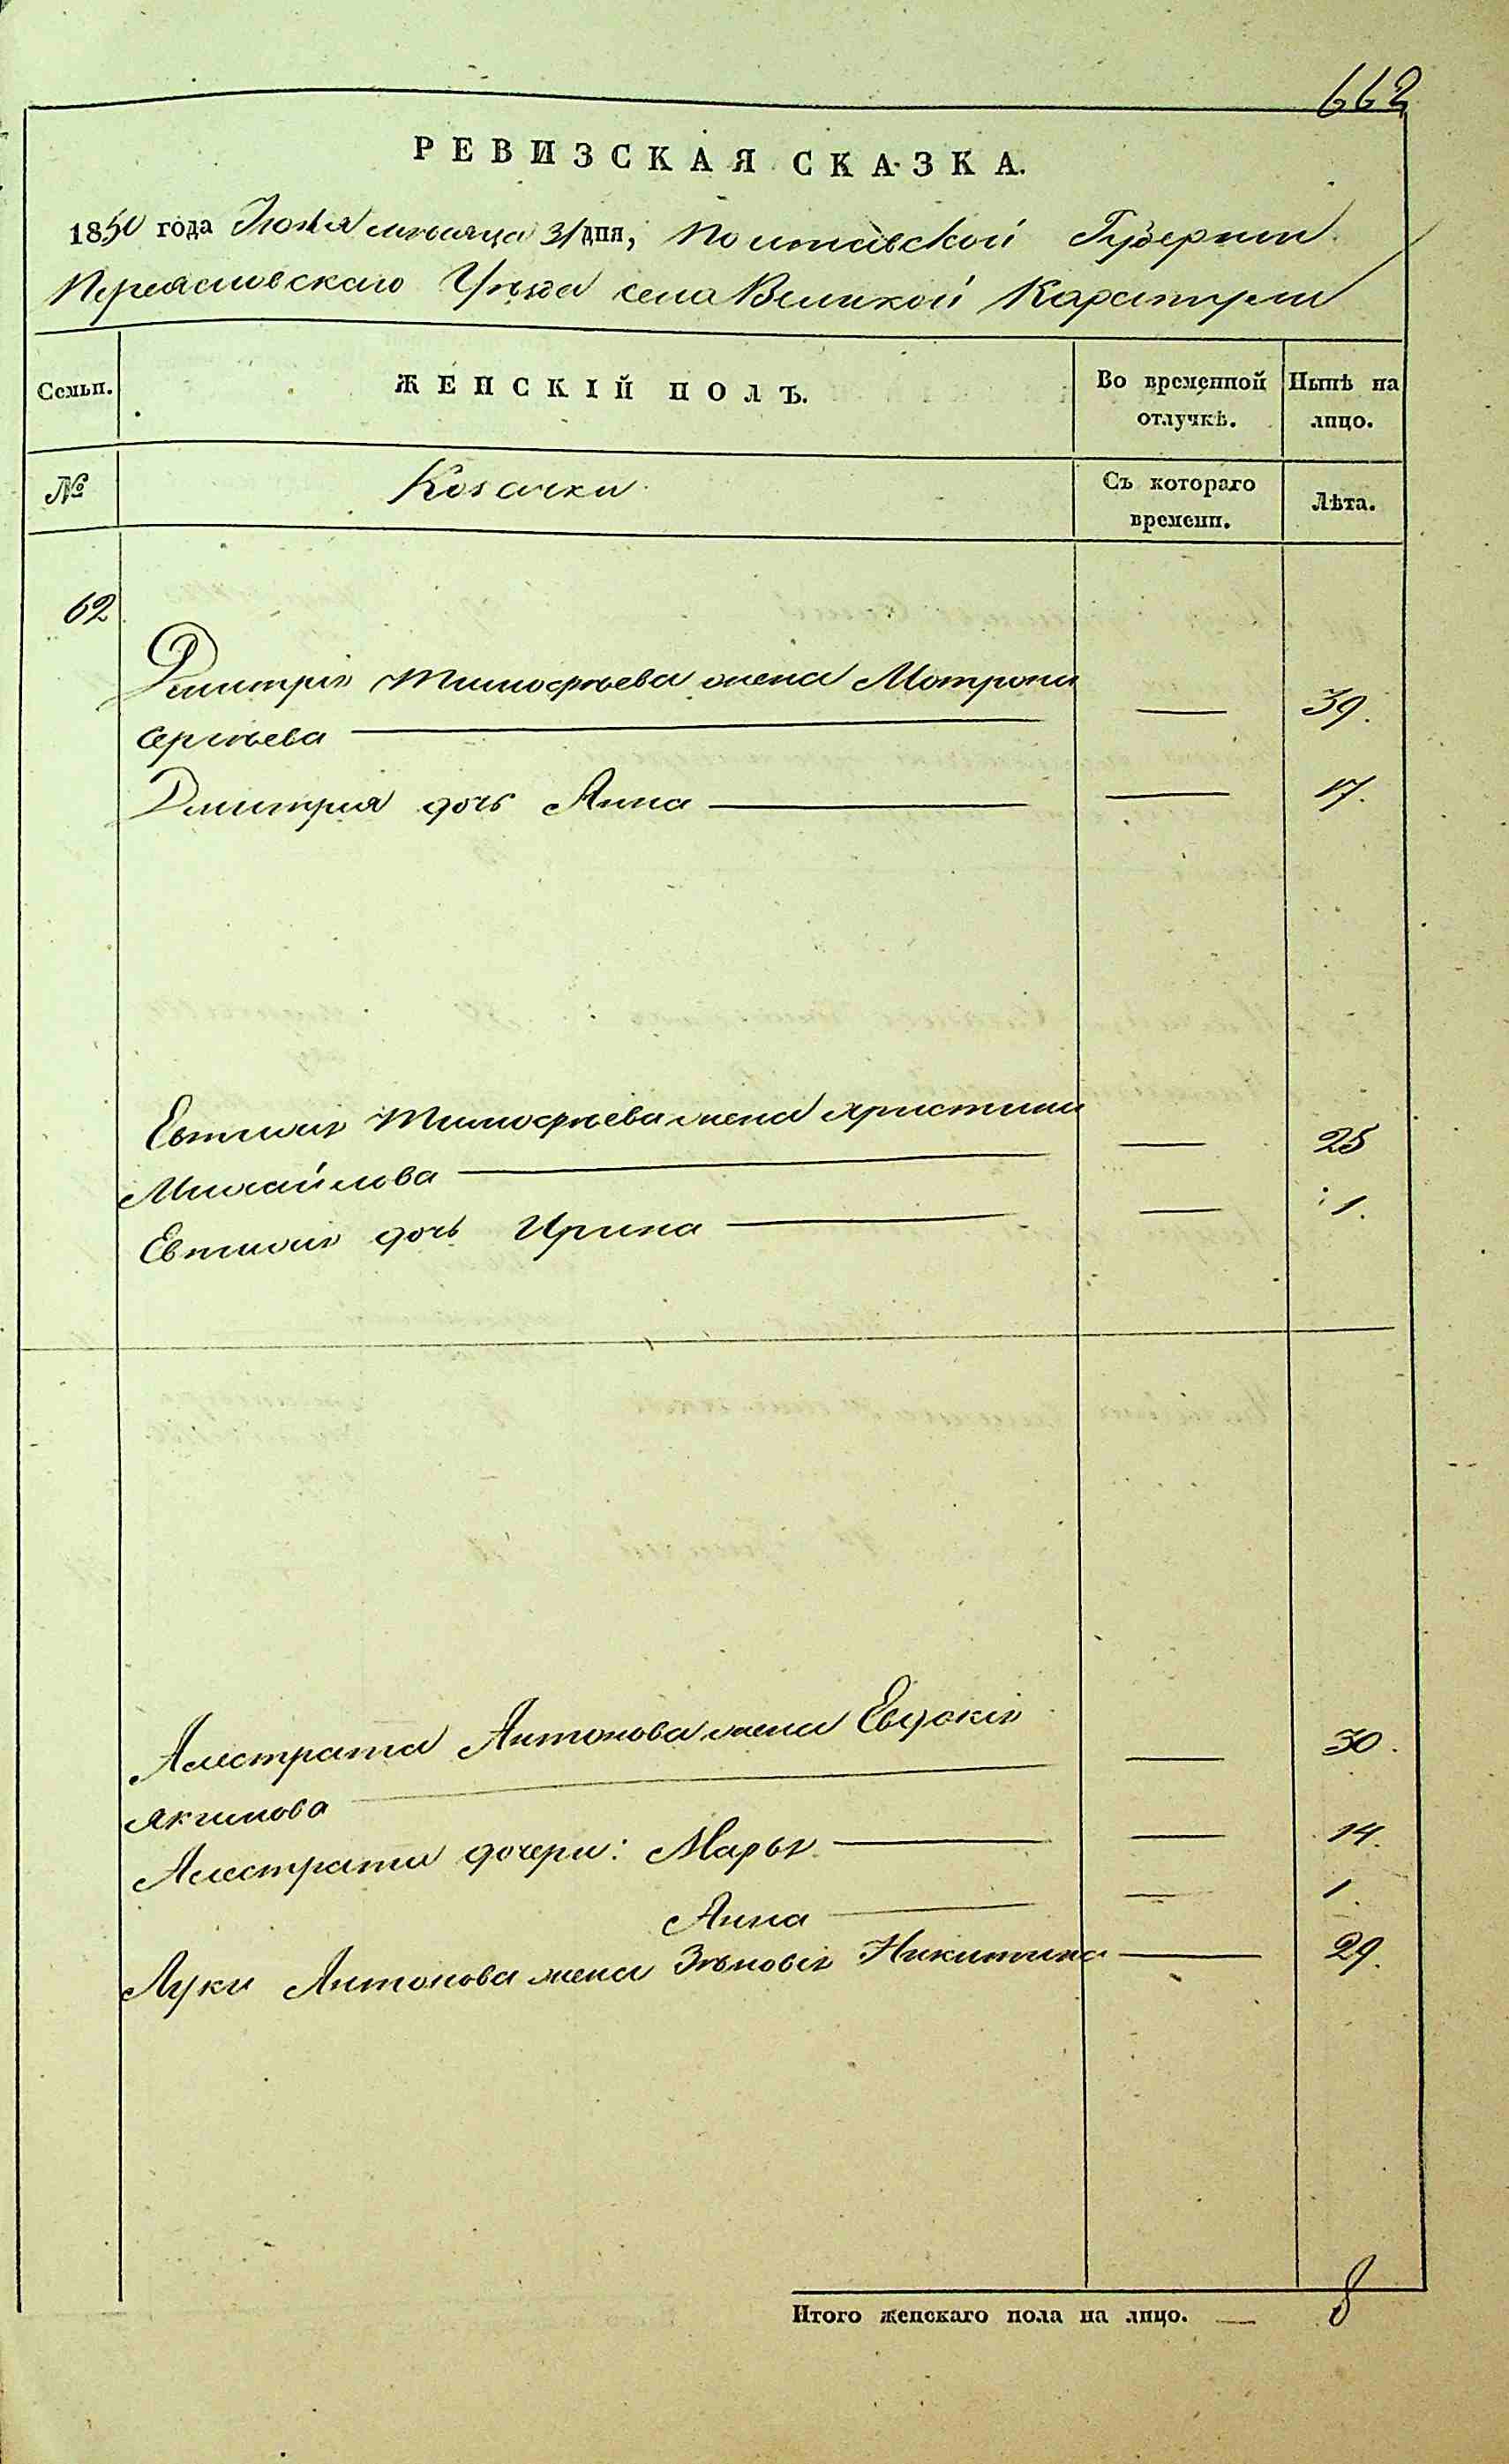 662
РЕВИЗСКАЯ СКАЗКА.
1850 года Июля месяца 31 дня, Полтавской Губернии
Переясловскаго Уѣзда села Великой Каратули
Семьи. ЖЕНСКІЙ ПОЛЪ. Во временной отлучкѣ. Нынѣ на лицо.
№ Козачки Съ котораго времени. Лѣта.
62
Дмитрія Тимофѣева жена Мотрона
Сергѣева — — 39.
Дмитрия дочь Анна — — 17.
Евтихія Тимофѣева жена Христина
Михайлова — — 25
Евтихія дочь Ирина — — 1.
Алистрата Антонова жена Евдокія
Якимова — — 30.
Алистрата дочери: Марья — — 14.
Анна — — 1.
Луки Антонова жена Зѣновія Никитина — 29.
Итого женскаго пола на лицо. — 8